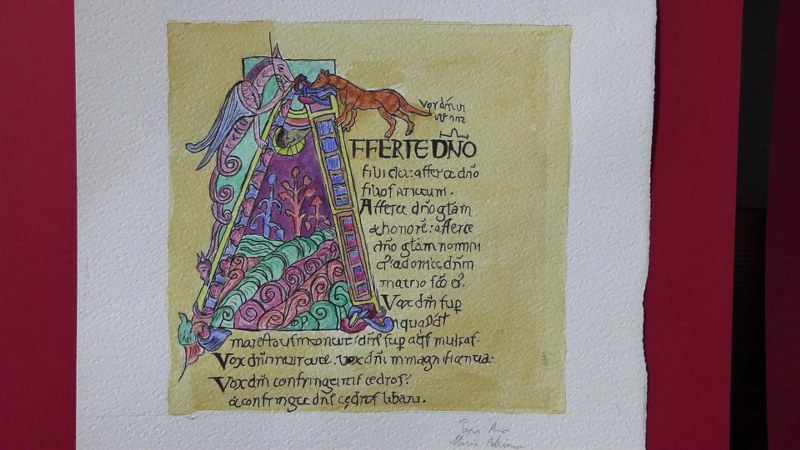 vox dni in
FFERTE DÑO
filii dei: afferte dño
filios arietum.
Afferte dño glam
& honorē: afferte
dño glam nomini
ei': adorate dñm
in atrio sco ei'.
Vox dñi sup
aquas
maiestatis intonuit: dñs sup aqs multas.
Vox dñi in uirtute. uox dñi in magnificentia.
Vox dñi confringentis cedros:
& confringet dñs cedros libani.
Maria